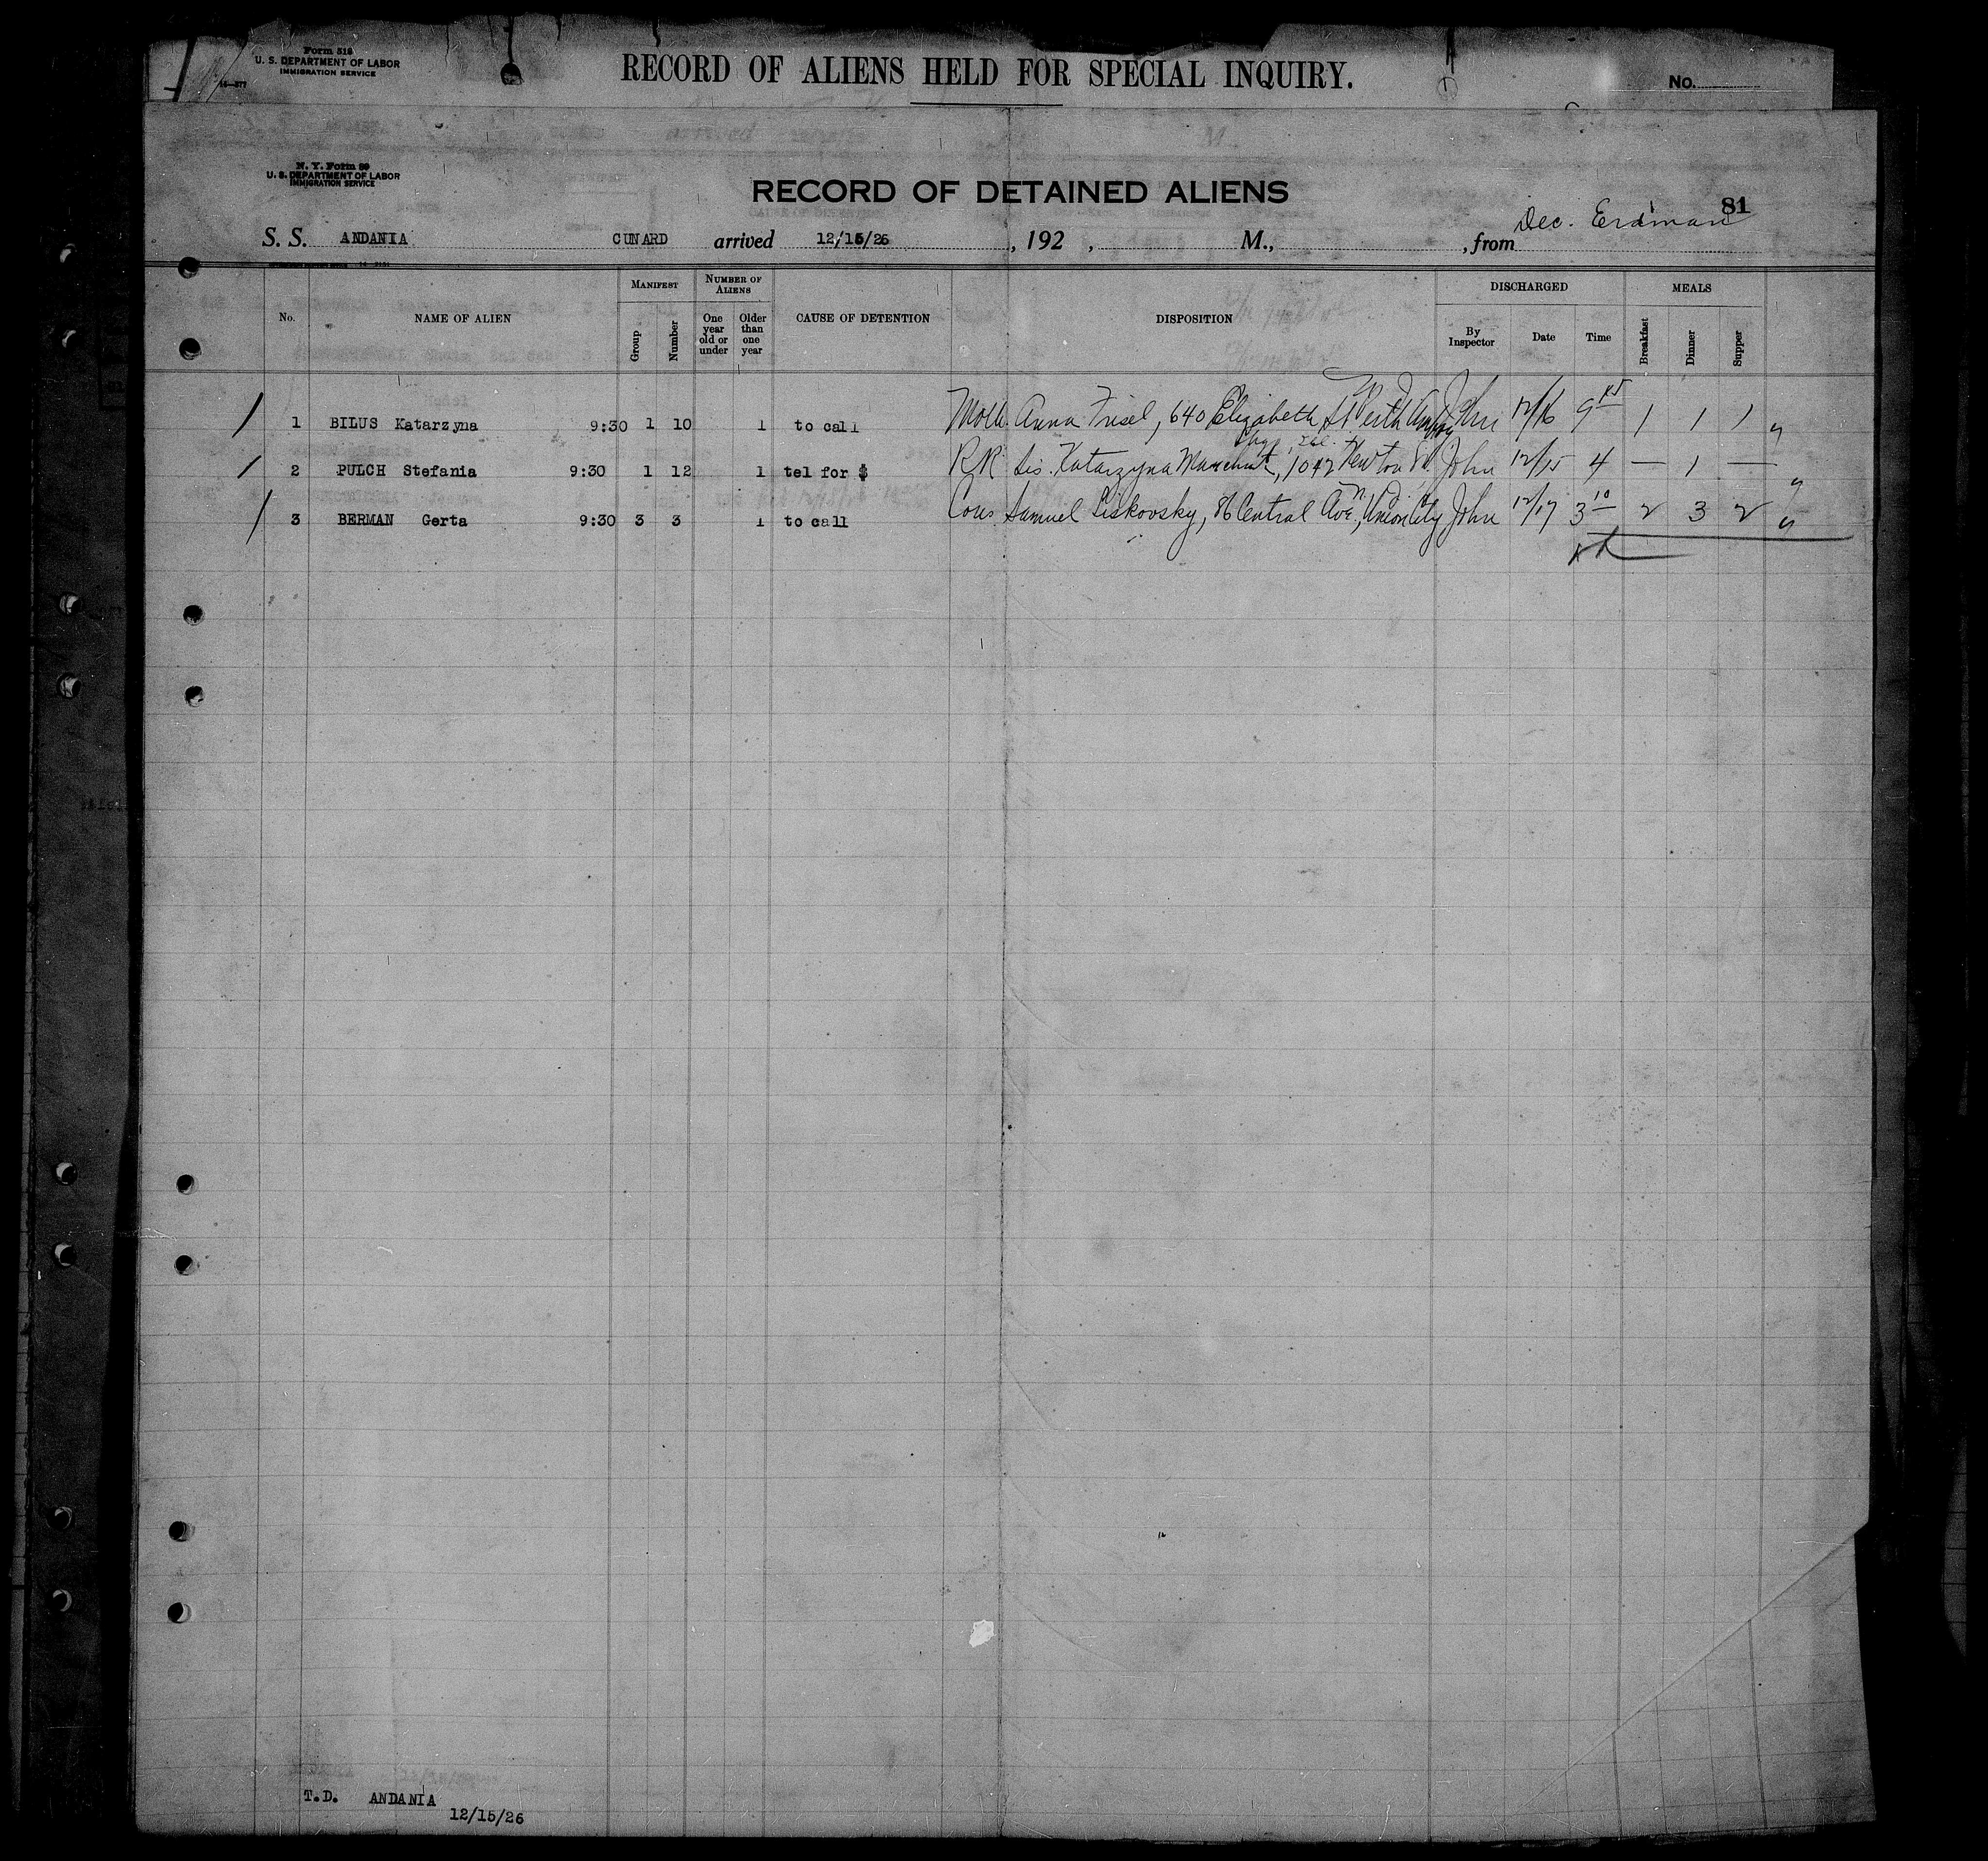 Form 518
U. S. DEPARTMENT OF LABOR
IMMIGRATION SERVICE
RECORD OF ALIENS HELD FOR SPECIAL INQUIRY.
No.
N. Y. Form 99
U. S. DEPARTMENT OF LABOR
IMMIGRATION SERVICE
RECORD OF DETAINED ALIENS
81
Dec. Erdman
S. S. ANDANIA CUNARD arrived 12/15/26 , 192 , M., , from
No. NAME OF ALIEN MANIFEST Group Number NUMBER OF ALIENS One year old or under Older than one year CAUSE OF DETENTION DISPOSITION DISCHARGED By Inspector Date Time MEALS Breakfast Dinner Supper
1 BILUS Katarzyna 9:30 1 10 1 to call Moth Anna Fusel, 640 Elizabeth St Perth Amboy John 12/16 9 45 1 1 1
2 PULCH Stefania 9:30 1 12 1 tel for $ RR Sis. Katarzyna 1042 Newton St. John 12/15 4 — 1 —
3 BERMAN Gerta 9:30 3 3 1 to call Cous Samuel Liskovsky, 86 Central Ave., Union City John 12/17 3 10 2 3 2
T.D. ANDANIA
12/15/26